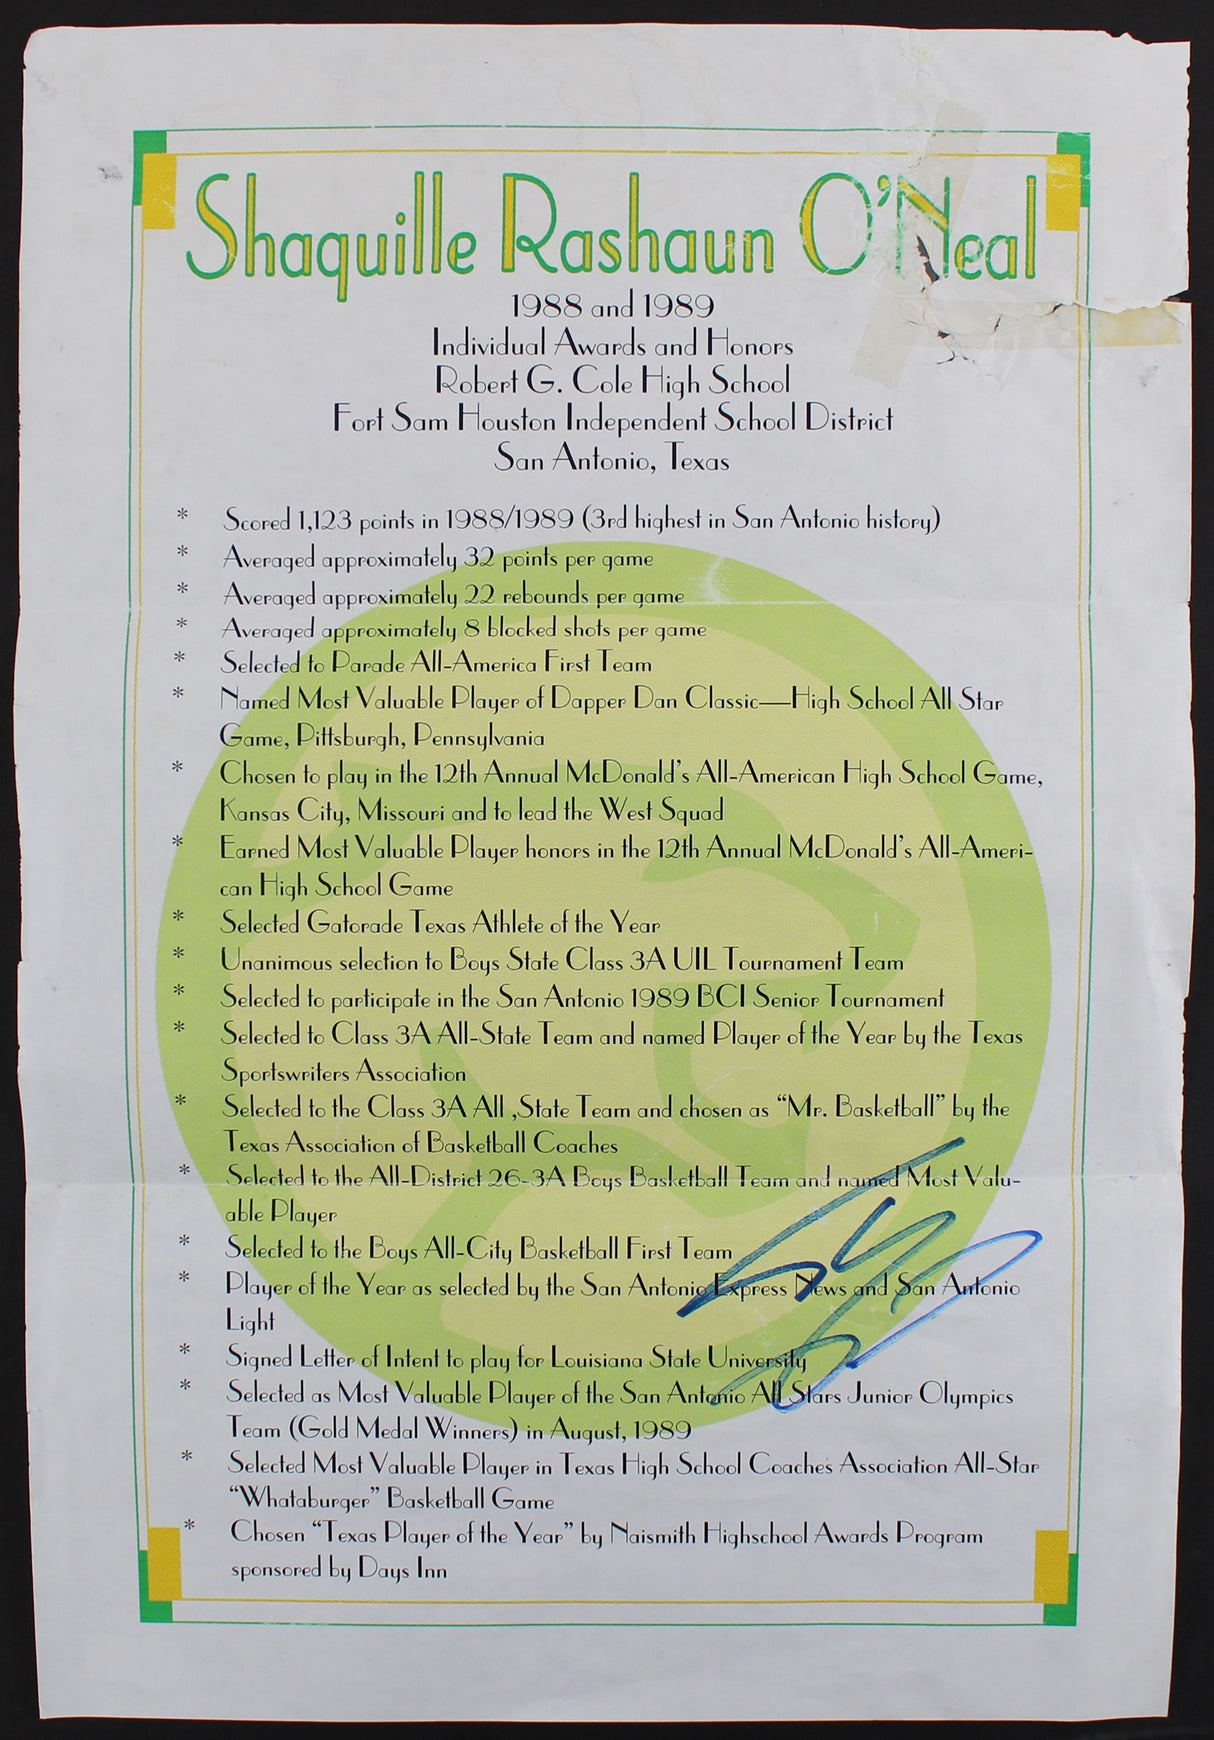 Shaquille Rashaun O'Neal
1988 and 1989
Individual Awards and Honors
Robert G. Cole High School
Fort Sam Houston Independent School District
San Antonio, Texas
* Scored 1,123 points in 1988/1989 (3rd highest in San Antonio history)
* Averaged approximately 32 points per game
* Averaged approximately 22 rebounds per game
* Averaged approximately 8 blocked shots per game
* Selected to Parade All-America First Team
* Named Most Valuable Player of Dapper Dan Classic—High School All Star
Game, Pittsburgh, Pennsylvania
* Chosen to play in the 12th Annual McDonald's All-American High School Game,
Kansas City, Missouri and to lead the West Squad
* Earned Most Valuable Player honors in the 12th Annual McDonald's All-Ameri-
can High School Game
* Selected Gatorade Texas Athlete of the Year
* Unanimous selection to Boys State Class 3A UIL Tournament Team
* Selected to participate in the San Antonio 1989 BCI Senior Tournament
* Selected to Class 3A All-State Team and named Player of the Year by the Texas
Sportswriters Association
* Selected to the Class 3A All ,State Team and chosen as “Mr. Basketball” by the
Texas Association of Basketball Coaches
* Selected to the All-District 26-3A Boys Basketball Team and named Most Valu-
able Player
* Selected to the Boys All-City Basketball First Team
* Player of the Year as selected by the San Antonio Express News and San Antonio
Light
* Signed Letter of Intent to play for Louisiana State University
* Selected as Most Valuable Player of the San Antonio All Stars Junior Olympics
Team (Gold Medal Winners) in August, 1989
* Selected Most Valuable Player in Texas High School Coaches Association All-Star
“Whataburger” Basketball Game
* Chosen “Texas Player of the Year” by Naismith Highschool Awards Program
sponsored by Days Inn